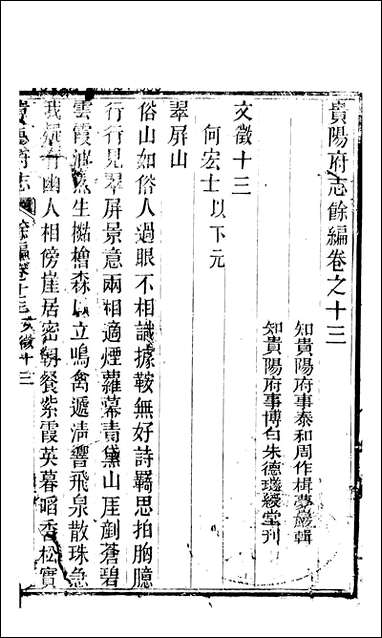 貴陽府志餘編卷之十三
知貴陽府事泰和周作楫夢巖輯
知貴陽府事博白朱德璲綬堂刊
文徵十三
何宏士以下元
翠屏山
俗山如俗人過眼不相識據鞍無好詩羈思拍胸臆
行行見翠屏景意兩相適煙蘿幕青黛山厓剷蒼碧
雲霞漉然生櫤檜森以立鳴禽遞清響飛泉散珠急
我疑有幽人相傍崖居密朝餐紫霞英暮㗖香松實
貴陽府志 餘編卷十三 文徵十三